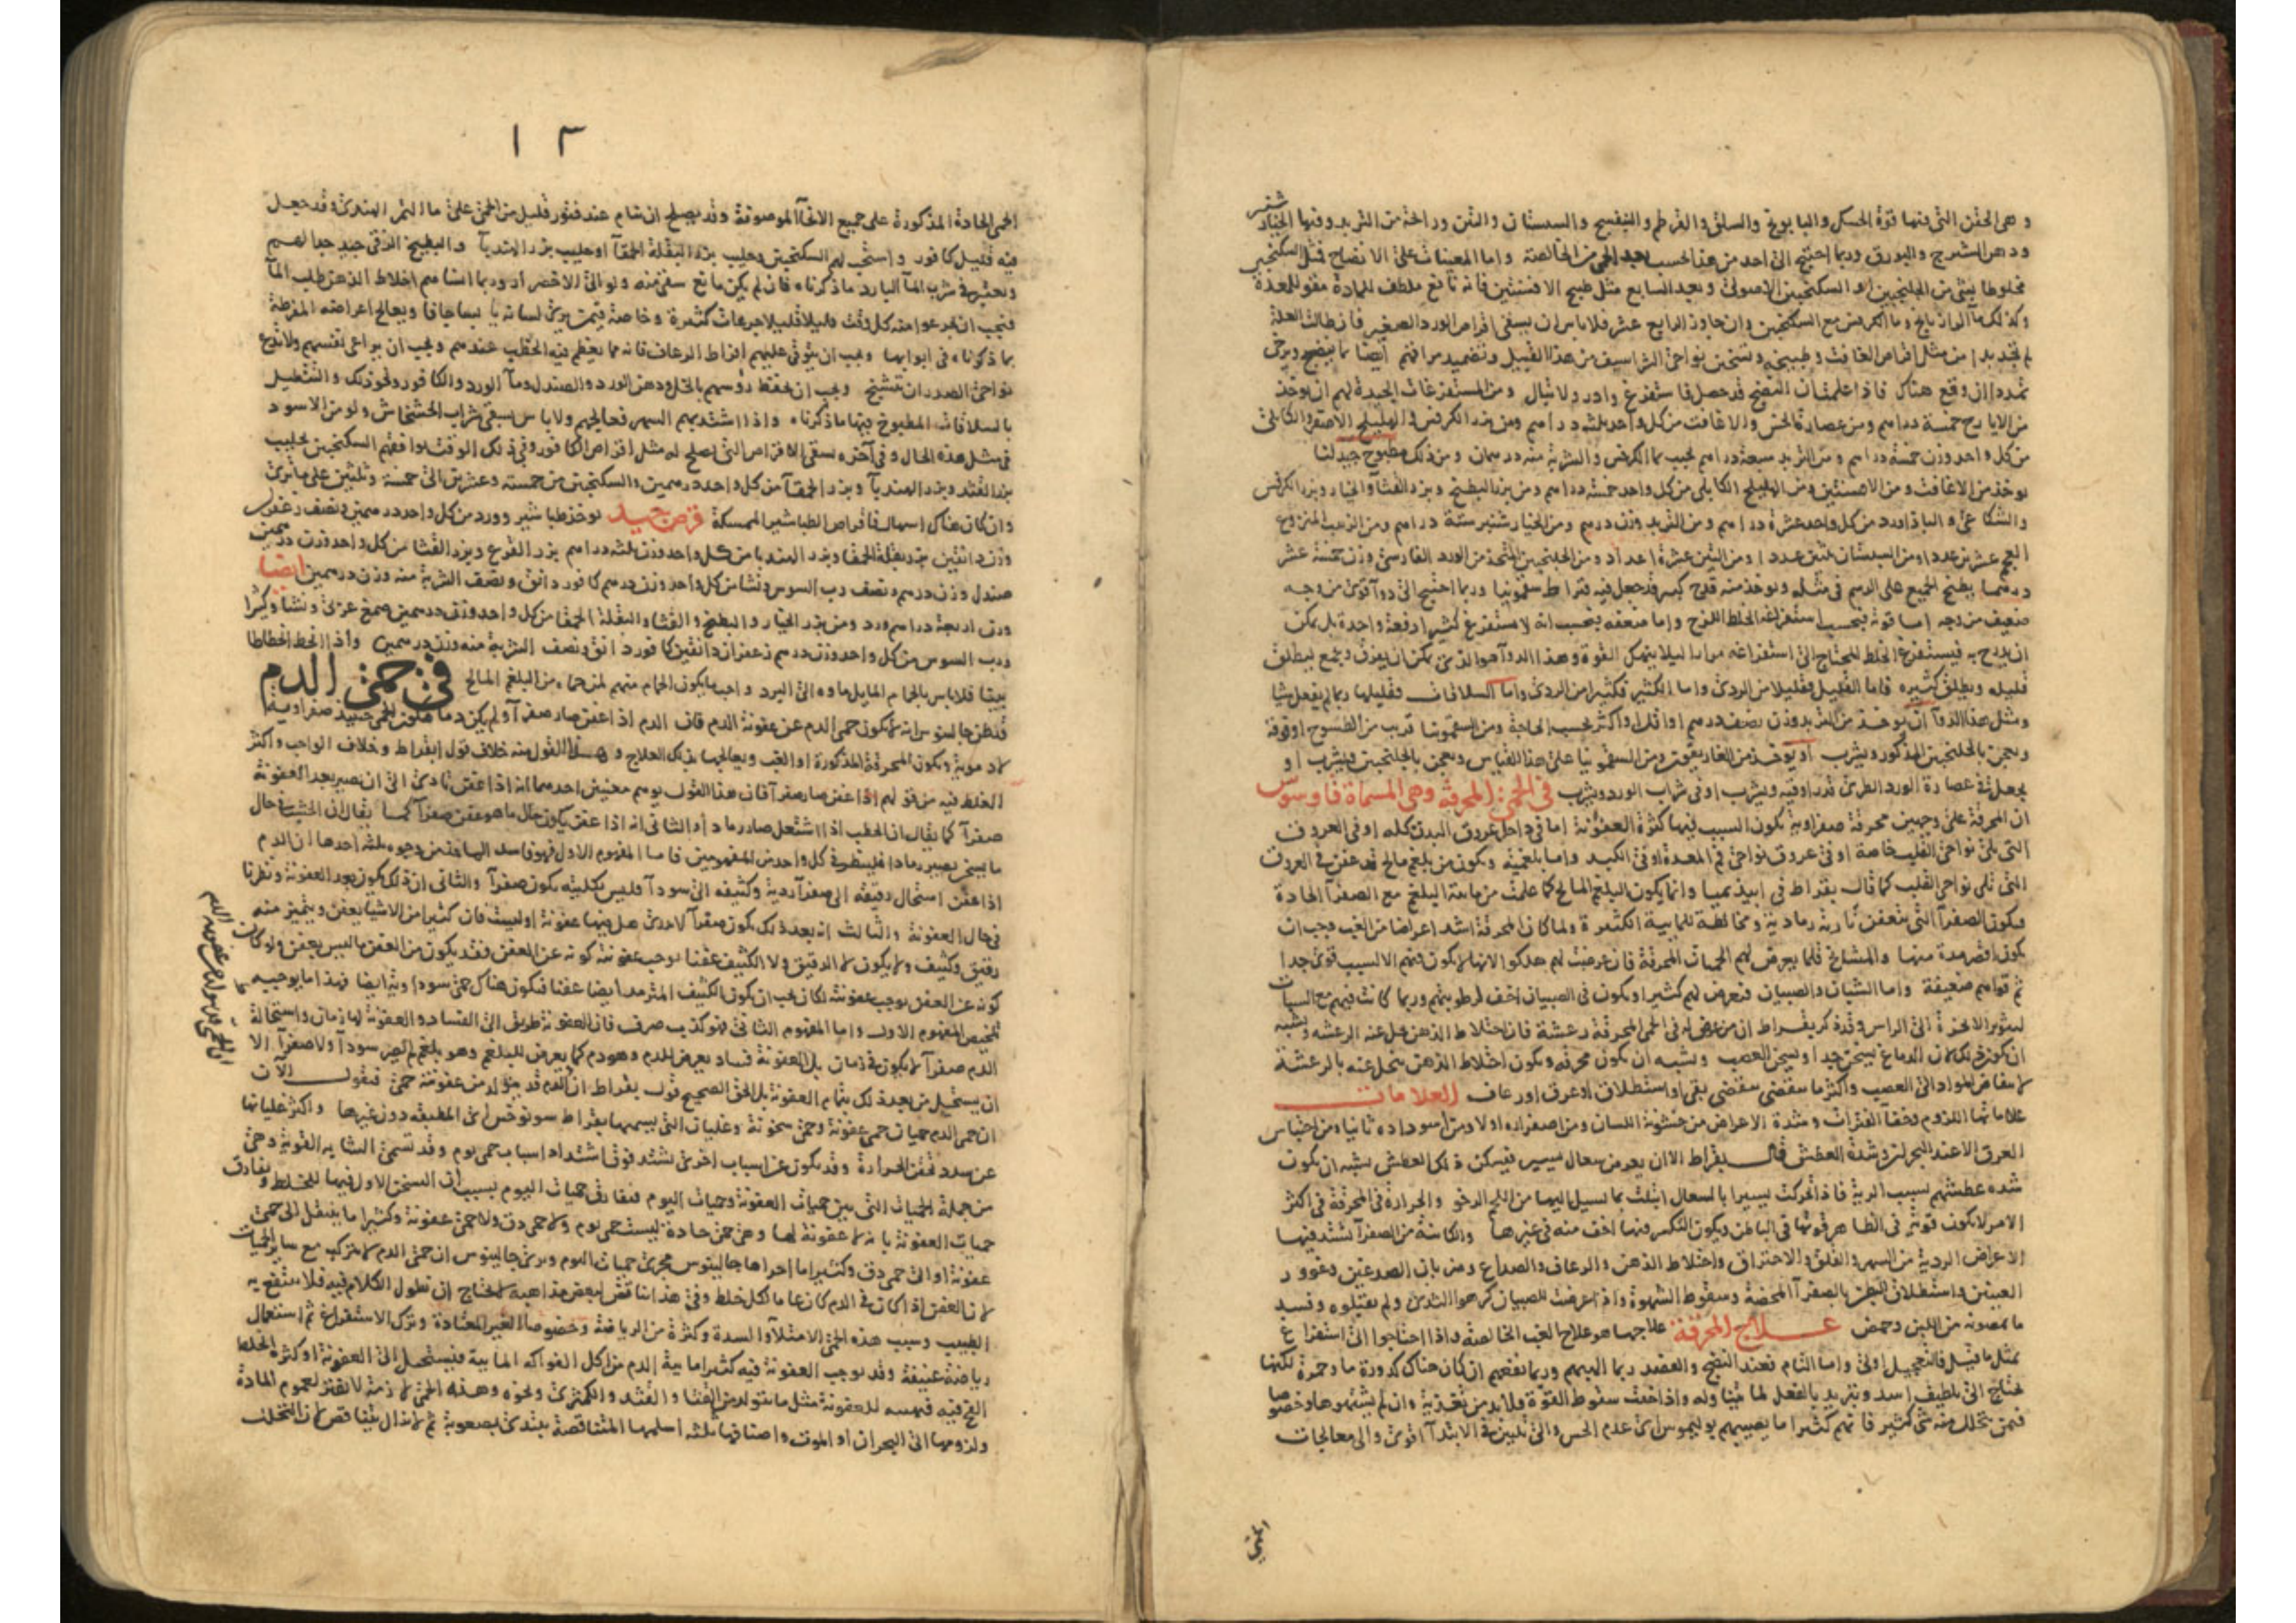 و هى الحقن التى فيها قوة الحسك والبابونج والسلق والقرطم والبنفسج والسبستان والتين وراحة من التربد وفيها الخيار شنبر
ودهن الشيرج والبورق وربما احتيج الى احد من هذا بحسب بعد الحمى من الخالصة واما المعينات على الانضاج فمثل السكنجبين
مخلوطا بشى من الجلنجبين او السكنجبين الاصولى وبعد السابع مثل طبيخ الافسنتين فانه نافع ملطف للمادة مقو للمعدة
وكذلك ماء الرازيانج وماء الكرفس مع السكنجبين وان جاوز الرابع عشر فلا باس ان يسقى اقراص الورد الصغير فان طالت العلة
لم تجد بدا من مثل اقراص الغافت وطبيخه وتسخين نواحى الشراسيف من هذا القبيل وتضميد مراقهم ايضا بما ينضج ويرخى
تمددا ان وقع هناك فاذا علمت ان النضج قد حصل فاستفرغ وادر ولا تبال ومن المستفرغات الجيدة لهم ان يوخذ
من الايارج خمسة دراهم ومن عصارة الخس والاغافت من كل واحد ثلثة دراهم ومن بزر الكرفس و الهليلج الاصفر والكابلى
من كل واحد وزن خمسة دراهم ومن التربد سبعة دراهم يحبب بماء الكرفس والشربة منه درهمان ومن ذلك مطبوخ جيد لنا
يوخذ من الاغافت ومن الافسنتين ومن الهليلج الكابلى من كل واحد خمسة دراهم ومن بزر البطيخ وبزر القثا والخيار وبزر الكرفس
والشكاعى و الباذاورد من كل واحد عشرة دراهم ومن التربد وزن درهم ومن الخيار شنبر ستة دراهم ومن الزبيب المنزوع
العجم عشرين عددا ومن السبستان ثلثين عددا ومن التين عشرة اعداد ومن الجلنجبين المتخذ من الورد الفارسى وزن خمسة عشر
درهما يطبخ الجميع على الرسم فى مثله ويوخذ منه قدح كبير قد جعل فيه قيراط سقمونيا وربما احتيج الى دواء قوى من وجه
ضعيف من وجه اما قوته فبحسب استفراغه الخلط اللزج واما ضعفه فبحسب انه لا يستفرغ كثيرا دفعة واحدة بل يمكن
ان يدرج به فيستفرغ الخلط المحتاج الى استفراغه مرارا ليلا ينهك القوة وهذا الدواء هو الذى يمكن ان يفرق ويجمع ليطلق
قليله ويطلق كثيره فاما القليل فقليلا من الردى واما الكثير فكثيرا من الردى واما السلاقات فقليلها ربما لم يفعل شيا
ومثل هذا الدواء ان يوخذ من التربد وزن نصف درهم او اقل او اكثر بحسب الحاجة ومن السقمونيا قريب من الطسوج او فوقه
ويعجن بالجلنجبين المذكور ويشرب او يوخذ من الغاريقون ومن السقمونيا على هذا القياس ويعجن بالجلنجبين ويشرب او
يجعل فى عصارة الورد الطرى قدر اوقية ويشرب او فى شراب الورد ويشرب فى الحمى المحرقة وهى المسماة فاوسوس
ان المحرقة على وجهين محرقة صفراوية يكون السبب فيها كثرة العفونة اما فى داخل عروق البدن كله او فى العروق
التى تلى نواحى القلب خاصة او فى عروق نواحى فم المعدة او فى الكبد واما بلغمية ويكون من بلغم مالح قد عفن فى العروق
التى تلى نواحى القلب كما قال بقراط فى ابيذيميا وانما يكون البلغم المالح كما علمت من مائية البلغم مع الصفراء الحادة
فيكون الصفراء التى يتعفن نارية رمادية ومخالطة للمايية الكثيرة ولما كان المحرقة اشد اعراضا من الغب وجب ان
يكون اقصر مدة منها والمشايخ قلما يعرض لهم الحميات المحرقة فان عرضت لهم هلكوا لانها لا يكون فيهم الا لسبب قوى جدا
ثم قواهم ضعيفة واما الشبان والصبيان فتعرض لهم كثيرا ويكون فى الصبيان اخف لرطوبتهم وربما كانت فيهم مع السبات
لتثوير الابخرة الى الراس وقد ذكر بقراط ان من عرض له فى الحمى المحرقة رعشة فان اختلاط الذهن يحل عنه الرعشه ويشبه
ان يكون ذلك لان الدماغ يسخن جدا ويسخن العصب ويشبه ان يكون محرقه ويكون اختلاط الذهن ينحل عنه بالرعشة
لانتفاض المواد الى العصب واكثر ما يقضى بقى او استطلاق او عرق او رعاف العلامات
علاماتها اللزوم وخفاء الفترات وشدة الاعراض من خشونة اللسان ومن اصفراره اولا ومن اسوداده ثانيا ومن احتباس
العرق الا عند البحران وشدة العطش قال بقراط الا ان يعرض سعال يسير فيسكن ذلك العطش يشبه ان يكون
شده عطشهم بسبب الرية فاذا تحركت يسيرا بالسعال ابتلت بما يسيل اليها من اللحم الرخو والحرارة فى المحرقة فى اكثر
الامر لا يكون قوتها فى الظاهر قوتها فى الباطن ويكون التكسر فيها اخف منه فى غيرها والكائنة من الصفراء تشتد فيها
الاعراض الردية من السهر والقلق والاحتراق واختلاط الذهن والرعاف والصداع وضربان الصدغين وغوور
العينين واستطلاق البطن بالصفراء المحضة وسقوط الشهوة واذا عرضت للصبيان كرهوا الثدى ولم يقبلوه وفسد
ما يمصونه من اللبن وحمض علاج المحرقة علاجها هو علاج الغب الخالصة واذا احتاجوا الى استفراغ
بمثل ما قيل فالتعجيل اولى واما التام فعند النضج والفصد ربما الهبهم وربما نفعهم ان كان هناك كدورة ماء وحمرة لكنها
تحتاج الى تلطيف اشد وتبريد بالفعل لما يتناوله واذا خفت سقوط القوة فلا بد من تغذية وان لم يشتهوها وخصوصا
فيمن تحلل منه شى كثير فانهم كثيرا ما يصيبهم بوليموس اى عدم الحس والى تليين فى الابتداء اقوى والى معالجات
الحمى
١٣
الحمى الحادة المذكورة على جميع الانحاء الموصوفة وقد يصلح ان ينام عند فتور قليل من الحمى على ماء التمر الهندى وقد جعل
فيه قليل كافور واستحب لهم السكنجبين وحليب بزر البقلة الحمقاء او حليب بزر الهندباء و البطيخ الرقى جيد جدا لهم
ويعتبر فى شرب الماء البارد ما ذكرناه فان لم يكن مانع سقى منه ولو الى الاخضرار وربما انساهم اختلاط الذهن طلب الماء
فيجب ان يجرعوا منه كل وقت قليلا قليلا جرعات كثيرة وخاصة فيمن ترى لسانه يابسا جافا ويعالج اعراضه المفرطة
بما ذكرناه فى ابوابها ويجب ان يتوقى عليهم افراط الرعاف فانه مما يعظم فيه الخطب عندهم ويجب ان يراعى نفسهم ولا يدع
نواحى الصدر ان تتشنج ويجب ان يحفظ رؤسهم بالخل ودهن الورد والصندل وماء الورد والكافور ونحو ذلك والتنطيل
بالسلاقات المطبوخ فيها ما ذكرناه واذا اشتد بهم السهر فعالجهم ولا باس بسقى شراب الخشخاش ولو من الاسود
فى مثل هذه الحال وفى آخره يسقى الاقراص التى تصلح له مثل اقراص الكافور وفى ذلك الوقت يوافقهم السكنجبين بحليب
بزر القثد وبزر الهندباء وبزر الحمقاء من كل واحد درهمين والسكنجبين من خمسته وعشرين الى خمسة وثلثين على ما ترى
وان كان هناك اسهال فاقراص الطباشير الممسكة قرص جيد يوخذ طباشير وورد من كل واحد درهمين ونصف زعفران
وزن دانقين بزر بقلة الحمقا وبزر الهندبا من كل واحد وزن ثلثه دراهم بزر القرع وبزر القثا من كل واحد وزن درهمين
صندل وزن درهم ونصف رب السوس ونشا من كل واحد وزن درهم كافور دانق ونصف الشربة منه وزن درهمين ايضا
ورق اربعة دراهم ورد ومن بزر الخيار والبطيخ والقثا والبقلة الحمقا من كل واحد وزن درهمين صمغ عربى ونشا وكثيرا
ورب السوس من كل واحد وزن درهم زعفران دانقين كافور دانق ونصف الشربة منه وزن درهمين واذا انحط انحطاطا
بينا فلا باس بالحمام المايل ماوه الى البرد واحب ما يكون الحمام منهم لمن حماه من البلغم المالح فى حمى الدم
قد ظن جالينوس انه لا يكون حمى الدم عن عفونة الدم فان الدم اذا عفن صار صفراء ولم يكن دما فتكون الحمى حينيذ صفراوية
لا دموية ويكون المحرقة المذكورة او الغب ويعالجها بذلك العلاج وهذا القول منه خلاف قول ابقراط وخلاف الواجب واكثر
الغلط فيه من قولهم اذا عفن صار صفراء فان هذا القول يوهم معنيين احدهما انه اذا عفن يادى الى ان يصير بعد العفونة
صفراء كما يقال ان الحطب اذا اشتعل صار رمادا والثانى انه اذا عفن يكون حال ما هو عفن صفراء كما يقال ان الخشب فى حال
ما يسخن يصير رمادا فلينظر فى كل واحد من المفهومين فاما المفهوم الاول فهو فاسد الماخذ من وجوه ثلثه احدها ان الدم
اذا عفن استحال رقيقه الى صفراء ردية وكثيفه الى سوداء فليس بكليته يكون صفراء والثانى ان ذلك يكون بعد العفونة ونظرنا
فى حال العفونة والثالث انه بعد ذلك يكون صفراء لا ندرى هل فيها عفونة او ليست فان كثيرا من الاشيا يعفن ويتميز منه
رقيق وكثيف ولا يكون لا الرقيق ولا الكثيف عفنا يوجب عفونته كونه عن العفن فقد يكون من العفن ما ليس بعفن ولو كان
كونه عن العفن يوجب عفونته لكان يجب ان يكون الكثيف المترمد ايضا عفنا فيكون هناك حمى سوداوية ايضا فهذا ما يوجبه
تلخيص المفهوم الاول واما المفهوم الثانى فهو كذب صرف فان العفونة طريق الى الفساد والعفونة لها زمان واستحالة
الدم صفراء لا يكون فى زمان بل العفونة فساد يعرض للدم وهو دم كما يعرض للبلغم وهو بلغم لم يصر سوداء ولا صفراء الا
ان يستحيل من بعد ذلك بتمام العفونة بل الحق الصحيح قول بقراط ان الدم قد يتولد من عفونته حمى فنقول الآن
ان حمى الدم حميات حمى عفونة وحمى سخونة وغليان التى يسميها بقراط سونوخس اى المطبقه دون غيرها واكثر غليانها
عن سدد تحقن الحرارة وقد يكون عن اسباب اخرى تشتد فوق اشتداد اسباب حمى يوم وقد تسمى الشابه القوية وهى
من جملة الحميات التى بين حميات العفونة وحميات اليوم فتفارق حميات اليوم بسبب ان السخن الاول فيها للخلط ويفارق
حميات العفونة بانه لا عفونة لها وهى حمى حادة ليست حمى يوم ولا حمى دق ولا حمى عفونة وكثيرا ما ينتقل الى حمى
عفونة او الى حمى دق وكثيرا ما اجراها جالينوس مجرى حميات اليوم ويرى جالينوس ان حمى الدم لا يتركب مع ساير الحميات
لان العفن اذا كان فى الدم كان عاما لكل خلط وفى هذا تناقض لبعض مذاهبه لا نحتاج ان نطول الكلام فيه فلا ينتفع به
الطبيب وسبب هذه الحمى الامتلاء والسدة وكثرة من الرياضة وخصوصا الغير المعتادة وترك الاستفراغ ثم استعمال
رياضة عنيفة وقد يوجب العفونة فيه كثيرا مايية الدم من اكل الفواكه المايية فيستحيل الى العفونة او كثرة الخلط
الفج فيه فيهييه للعفونة مثل ما يتولد من القثا والقثد والكمثرى ونحوه وهذه الحمى لازمة لا تفتر لعموم المادة
ولزومها الى البحران او الموت واصنافها ثلثه اسلمها المتناقصة يبتدى بصعوبة ثم لا يزال يتناقص لان التحلل